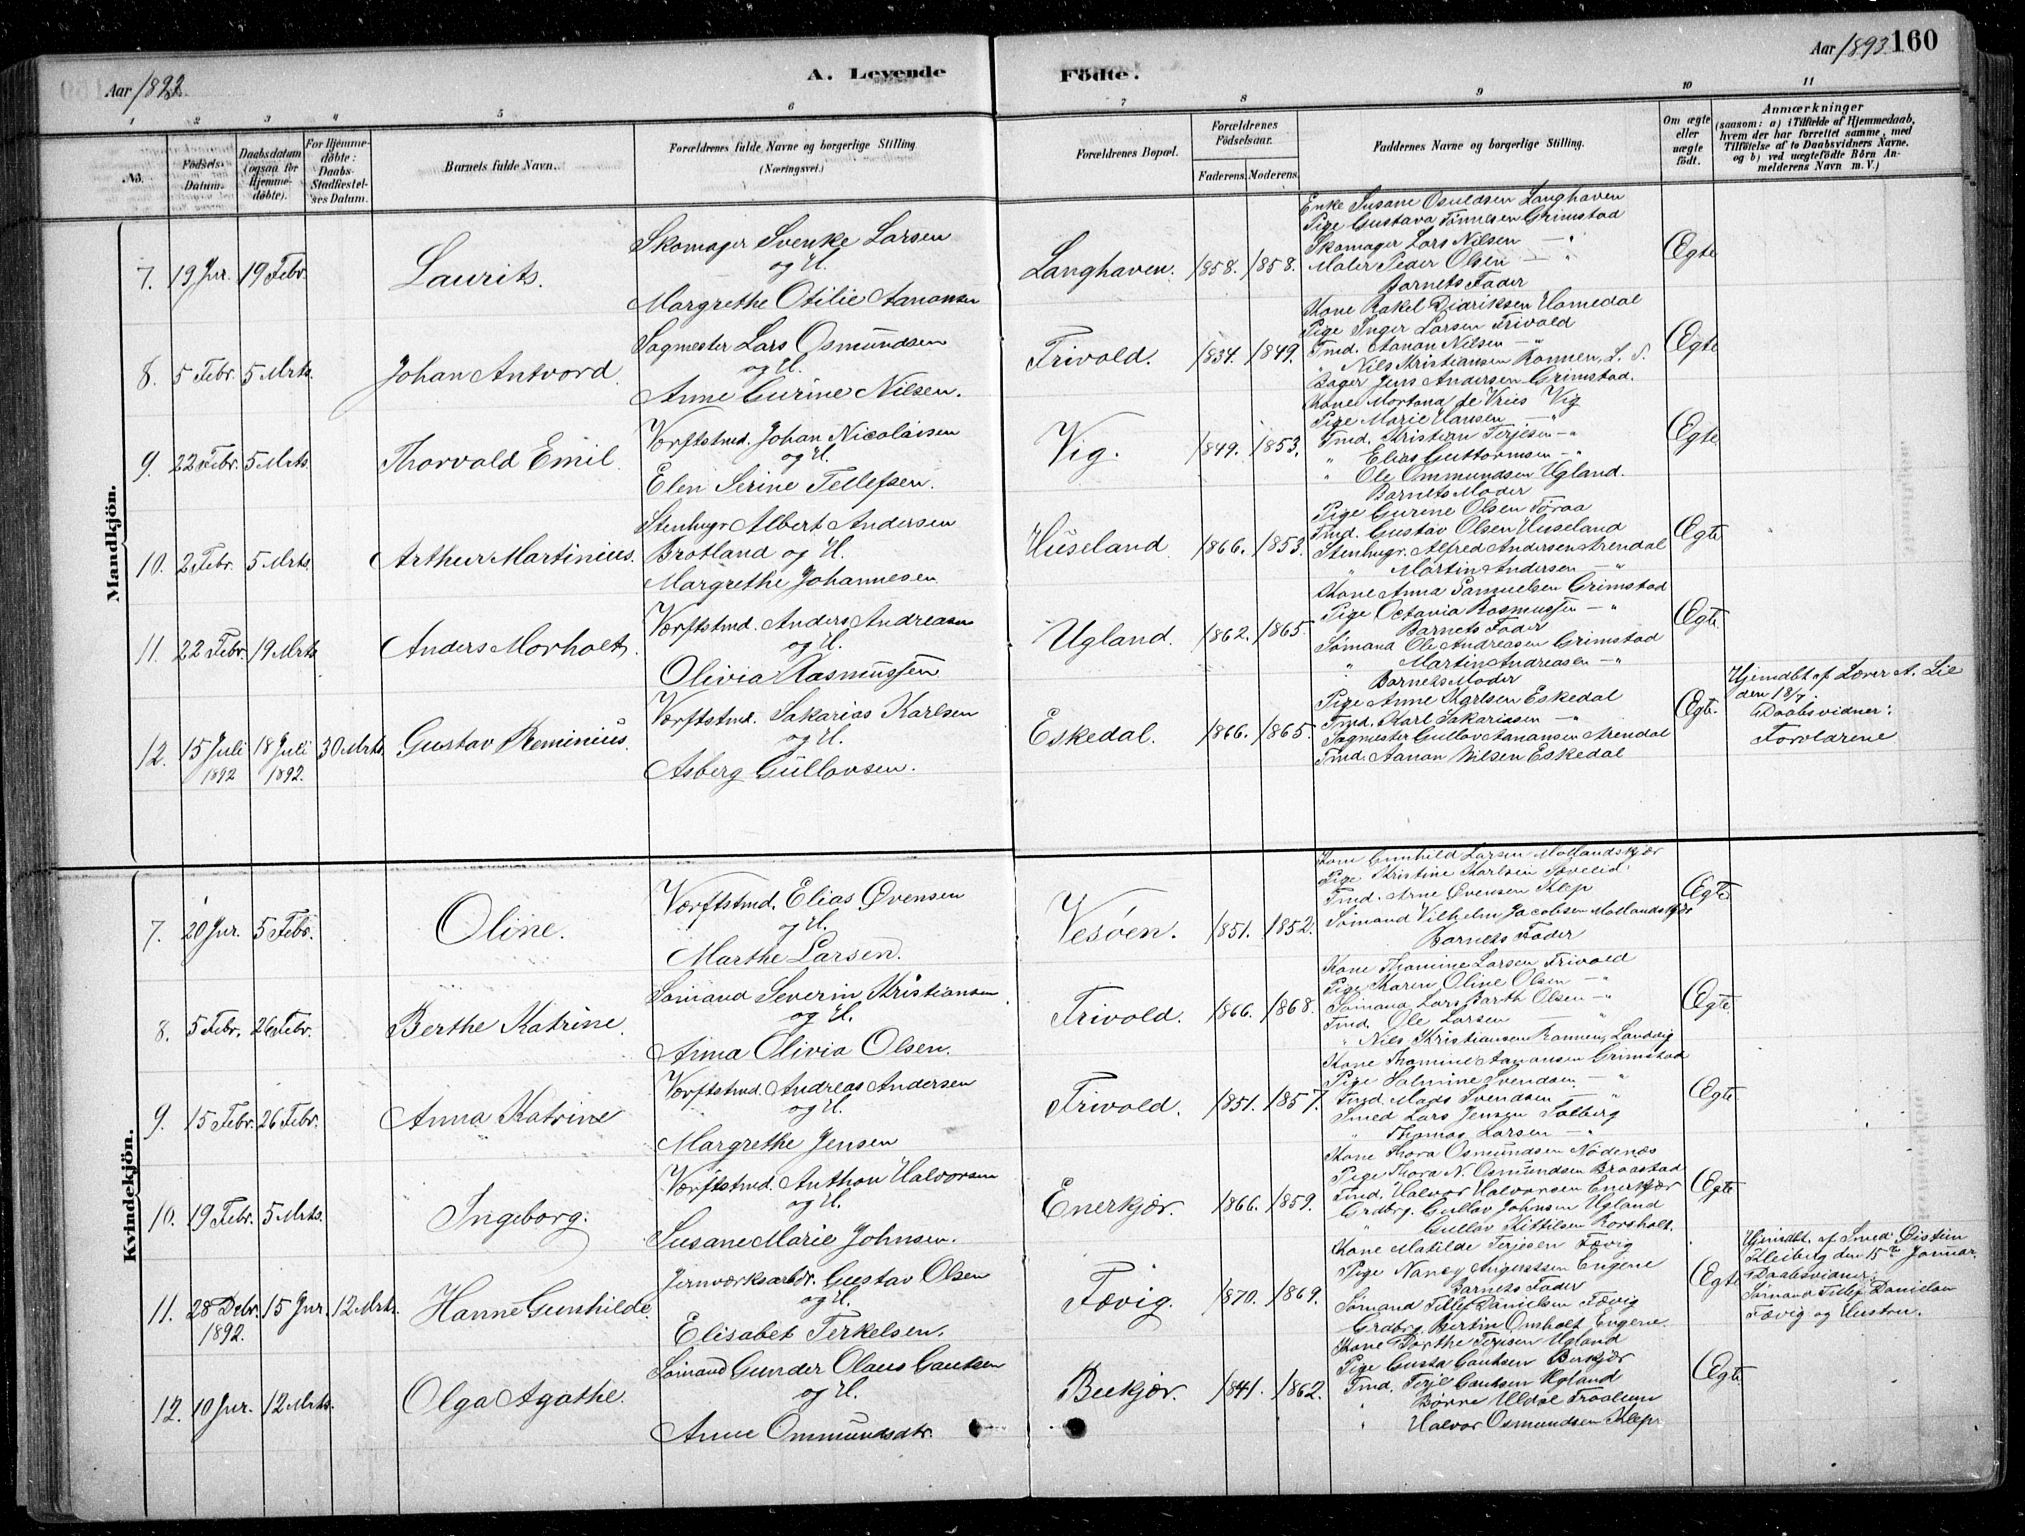 Aar 1892.
A. Levende Födte.
Aar 1893. 160
1 2 3 4 5 6 7 8 9 10 11
No. Födsels-Datum. Daabsdatum (ogsaa for Hjemmedöbte). For Hjemmedöbte: Daabs-Stadfæstelses Datum. Barnets fulde Navn. Forældrenes fulde Navne og borgerlige Stilling. (Næringsvei.) Forældrenes Bopæl. Forældrenes Födselsaar. Faderens. Moderens. Faddernes Navne og borgerlige Stilling. Om ægte eller uægte födt. Anmærkninger (saasom: a) i Tilfælde af Hjemmedaab, hvem der har forrettet samme, med Tilföielse af to Daabsvidners Navne, og b) ved uægtefödte Börn Anmelderens Navn m. V.)
Mandkjön.
7. 19 Jnr. 19 Febr. Laurits.
Skomager Svenke Larsen
og H.
Margrethe Otilie Aanonsen
Langhaven. 1858. 1858.
Enke Susane Osuldsen Langhaven
Pige Gustava Tönnesen Grimstad
Skomager Lars Nilsen — "
Maler Peder Olsen — "
Barnets Fader
Ægte
8. 5 Febr. 5 Mrts. Johan Antvord.
Sagmester Lars Osmundsen
og H.
Anne Gurine Nilsen.
Trivold. 1834. 1849.
Kone Rakel Didriksen Homedal
Pige Inger Larsen Frivold
Tmd. Aanon Nilsen — "
" Nils Kristiansen Rönnen, L. S.
Bager Jens Andersen Grimstad.
Ægte
9. 22 Febr. 5 Mrts. Thorvald Emil.
Værftstmd. Johan Nicolaisen
og H.
Elen Serine Tellefsen.
Vig. 1849. 1853.
Kone Mortana de Vries Vig
Pige Marie Hansen — "
Tmd. Kristian Terjesen — "
" Elias Guttormsen — "
" Ole Ommundsen Ugland.
Barnets Moder
Ægte
10. 2 Febr. 5 Mrts. Arthur Martinius.
Stenhugr. Albert Andersen
Brotland og H.
Margrethe Johannesen
Huseland. 1866. 1853.
Pige Gurine Olsen Töraa
Tmd. Gustav Olsen Huseland
Stenhugr. Alfred Andersen Arendal
" Martin Andersen — "
Ægte
11. 22 Febr. 19 Mrts. Anders Morholt.
Værftstmd. Anders Andreasen
og H.
Olivia Rasmussen
Ugland. 1862. 1865.
Kone Anna Samuelsen Grimstad
Pige Octavia Rasmussen — "
Barnets Fader
Sömand Ole Andreasen Grimstad
" Martin Andreasen — "
Barnets Moder
Ægte
12. 15 Juli 1892 18 Juli 1892. 30 Mrts. Gustav Reminius.
Værftstmd. Sakarias Karlsen
og H.
Asberg Gullovsen.
Eskedal. 1866. 1865.
Pige Anne Karlsen Eskedal
Tmd. Karl Sakariasen — "
Sagmester Gullov Aanonsen Arendal
Tmd. Aanon Nilsen Eskedal
Ægte.
Hjemdbt af Lærer A. Lie
den 18/7.
Daabsvidner:
Forældrene
Kvindekjön.
7. 20 Jnr. 5 Febr. Oline.
Værftstmd. Elias Øvensen
og H.
Marthe Larsen.
Vesöen. 1851. 1852.
Kone Gunhild Larsen Mollandskjær
Pige Kristine Karlsen
Tmd. Arne Øvensen Klep
Sömand Vilhelm Jacobsen Mollandskjær
Barnets Fader
Ægte.
8. 5 Febr. 26 Febr. Berthe Katrine.
Sömand Severin Kristiansen
og H.
Anna Olivia Olsen.
Trivold. 1866. 1868.
Kone Thomine Larsen Frivold
Pige Karen Oline Olsen — "
Sömand Lars Barth Olsen — "
Tmd. Ole Larsen — "
" Nils Kristiansen Rönnen, Landvig
Ægte.
9. 15 Febr. 26 Febr. Anna Katrine
Værftstmd. Andreas Andersen
og H.
Margrethe Jensen
Trivold. 1851. 1857.
Kone Thomine Aanonsen Grimstad
Pige Salmine Svendsen — "
Tmd. Mads Svendsen — "
Smed Lars Jensen Solberg
" Thomas Larsen — "
Ægte
10. 19 Febr. 5 Mrts. Ingeborg.
Værftstmd. Anthon Halvorsen
og H.
Susane Marie Johnsen.
Enerkjær. 1866. 1859.
Kone Thora Osmundsen Nödenæs
Pige Thora N. Osmundsen Braastad
Tmd. Halvor Halvorsen Enerkjær
Grdbrg. Gullov Johnsen Ugland
" Gullov Kittilsen Rorsholt.
Ægte
11. 28 Dcbr. 1892. 15 Jnr. 12 Mrts. Hanne Gunhilde.
Jernværksarbdr. Gustav Olsen
og H.
Elisabet Terkelsen.
Fævig. 1870. 1869.
Kone Matilde Terjesen Fævig
Pige Nancy Engene
Barnets Fader
Sömand Tellef Danielsen Fævig
Grdbrg. Bertin Omholt Engene.
Ægte
Hjemdbt. af Smed Øistein
Kleiberg den 15de Januar.
Daabsvidner:
Sömand Tellef Danielsen
Fævig og Hustru.
12. 10 Jnr. 12 Mrts. Olga Agathe.
Sömand Gunder Olaus Gautsen
og H.
Anne Ommundsdtr.
Beekjær. 1841. 1862.
Kone Dorthe Terjesen Ugland
Pige Gusta Gautsen Birkjær
Tmd. Terje Gautsen Ugland
" Börre Uldal
" Halvor Osmundsen Klep.
Ægte.